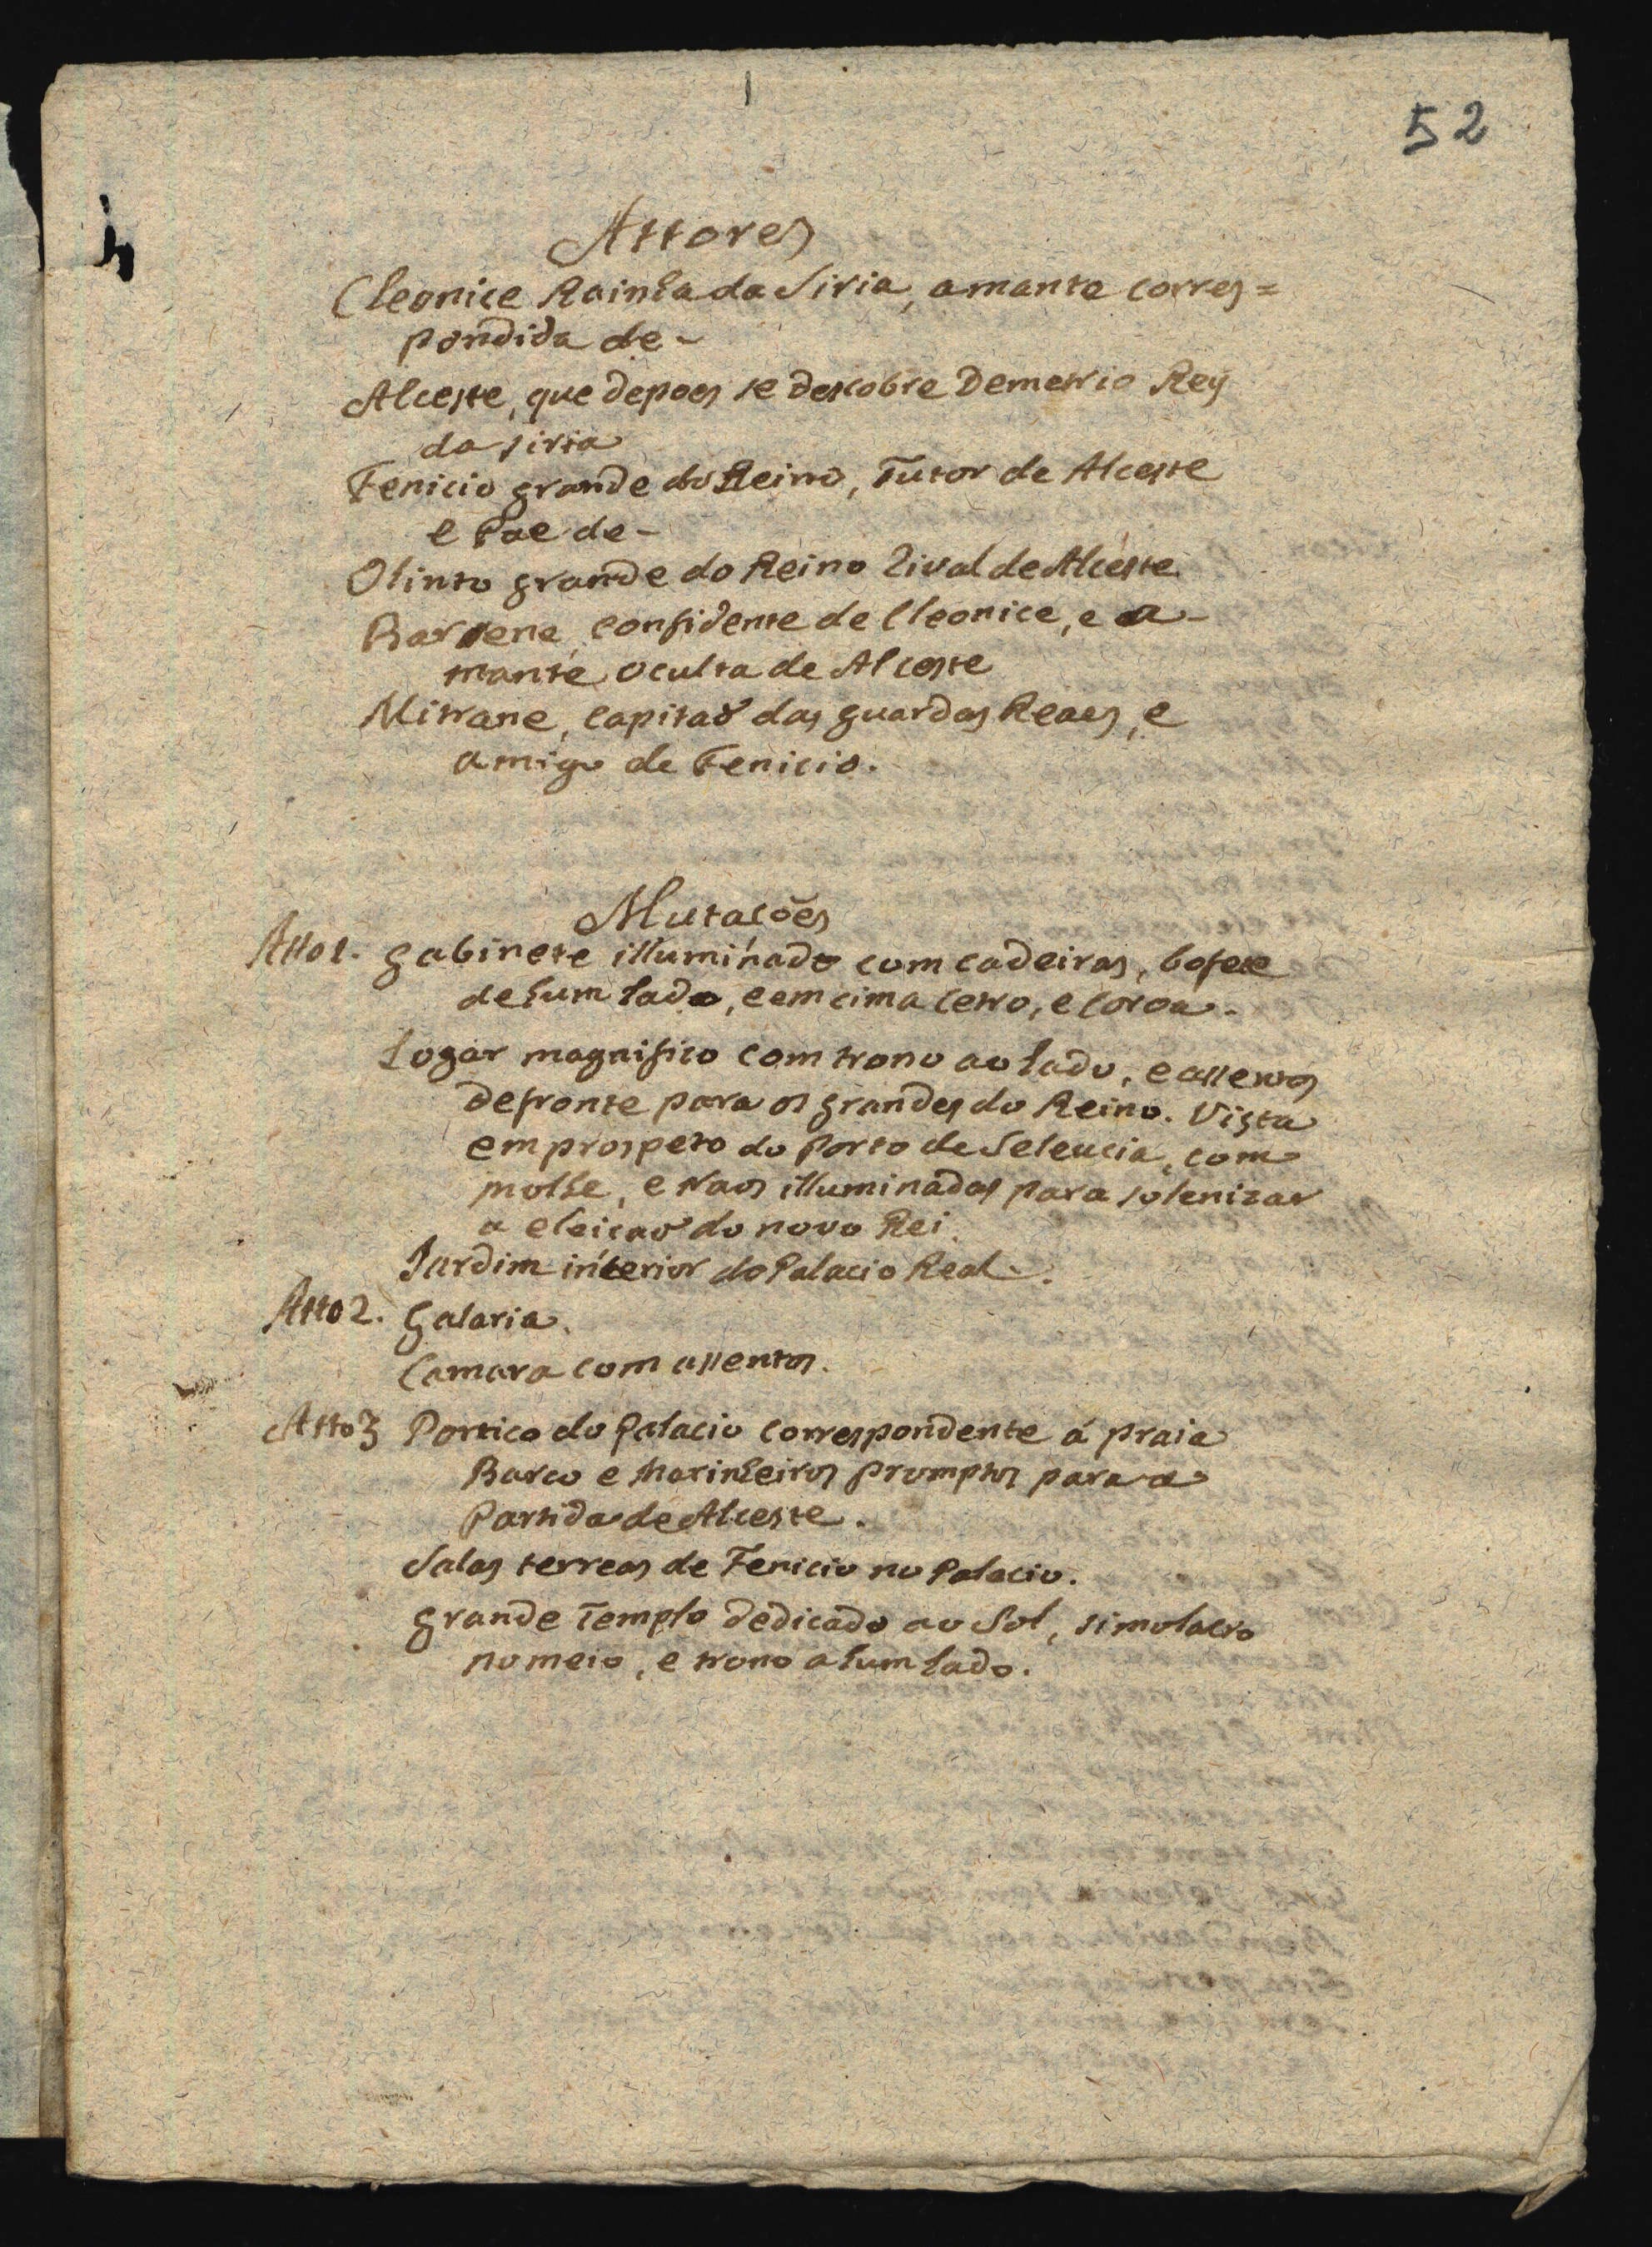 52
Attores
Cleonice Rainha da Siria, amante corres=
pondida de-
Alceste, que depoes se descobre Demetrio Rey
da siria
Fenicio grande do Reino, Tutor de Alceste
e Pae de-
Olinto grande do Reino Rival de Alceste
Barsene, confidente de Cleonice, e a-
mante oculta de Alceste
Mitrane, capitaõ das guardas Reaes, e
amigo de Fenicio.
Mutacões
Atto 1. gabinete illuminado com cadeiras, bofete
de hum lado, e em cima cetro, e coroa.
Logar magnifico com trono ao lado, e assentos
defronte para os grandes do Reino. Vista
em prospeto do Porto de Seleucia, com
molhe, e Naos illuminadas para solenizar
a eleicaõ do novo Rei.
Jardim interior do Palacio Real.
Atto 2. Galaria.
Camara com assentos.
Atto 3 Portico do Palacio correspondente á praia
Barco e Marinheiros promptos para a
Partida de Alceste.
Salas terreas de Fenicio no Palacio.
grande Templo dedicado ao Sol, simolacro
no meio, e trono a hum lado.